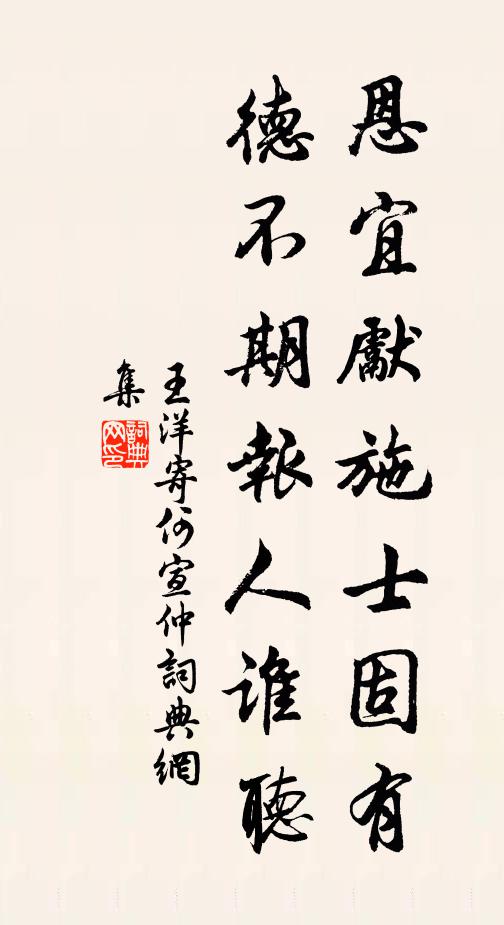 恩宜獻施士固有
德不期報人誰聽
王洋寄何宣仲詞典網
集
詞典
网印